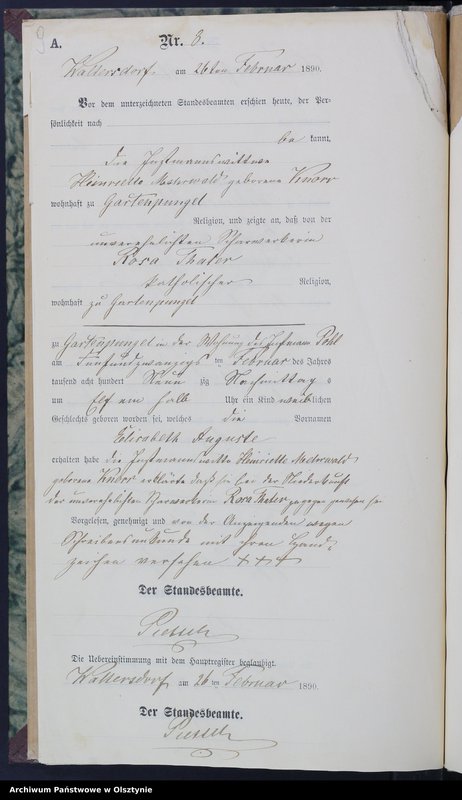 9
A.
Nr. 8.
Waltersdorf am 26ten Februar 1890.
Vor dem unterzeichneten Standesbeamten erschien heute, der Per-
sönlichkeit nach
be kannt,
die Instmannswittwe
Heinriette geborene Knorr
wohnhaft zu Gartenpungel
Religion, und zeigte an, daß von der
unverehelichten Scharwerkerin
Rosa Thater
katholischer Religion,
wohnhaft zu Gartenpungel
zu Gartenpungel in der Wohnung des Instmann Pohl
am Fünfundzwanzigs ten Februar des Jahres
tausend acht hundert Neun zig Nachmittag s
um Elf ein halb Uhr ein Kind weiblichen
Geschlechts geboren worden sei, welches die Vornamen
Elisabeth Auguste
erhalten habe die Instmannswittwe Heinriette
geborene Knorr erklärte daß sie bei der Niederkunft
der unverehelichten Scharwerkerin Rosa Thater zugegen gewesen sei
Vorgelesen, genehmigt und von der Anzeigenden wegen
Schreibensunkunde mit ihren Hand-
zeichen versehen + + +
Der Standesbeamte.
Die Uebereinstimmung mit dem Hauptregister beglaubigt.
Waltersdorf am 26 ten Februar 1890.
Der Standesbeamte.
Archiwum Państwowe w Olsztynie